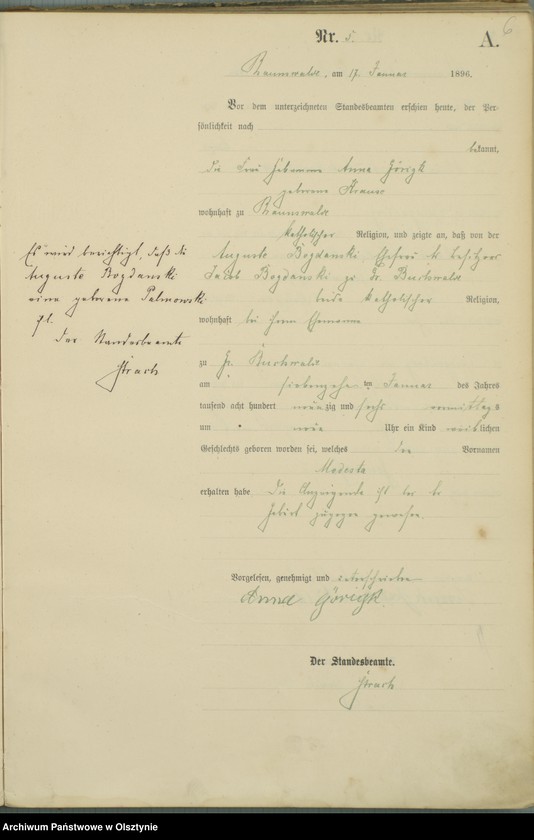 6
Nr. 5.
A.
Braunswalde, am 17. Januar 1896.
Vor dem unterzeichneten Standesbeamten erschien heute, der Per-
sönlichkeit nach
bekannt,
die Frau Hebamme Anna Görigk
geborene Krause
wohnhaft zu Braunswalde
katholischer Religion, und zeigte an, daß von der
Auguste Bogdanski Ehefrau des Besitzers
Jacob Bogdanski zu Gr. Buchwalde
beide katholischer Religion,
wohnhaft bei ihrem Ehemanne
zu Gr. Buchwalde
am siebenzehnten Januar des Jahres
tausend acht hundert neunzig und sechs vormittags
um neun Uhr ein Kind weiblichen
Geschlechts geboren worden sei, welches den Vornamen
Modesta
erhalten habe Die Anzeigende ist bei der
Geburt zugegen gewesen.
Es wird berichtigt, daß die
Auguste Bogdanski
eine geborene Palmowski
ist.
Der Standesbeamte
Vorgelesen, genehmigt und unterschrieben
Anna Görigk.
Der Standesbeamte.
Archiwum Państwowe w Olsztynie